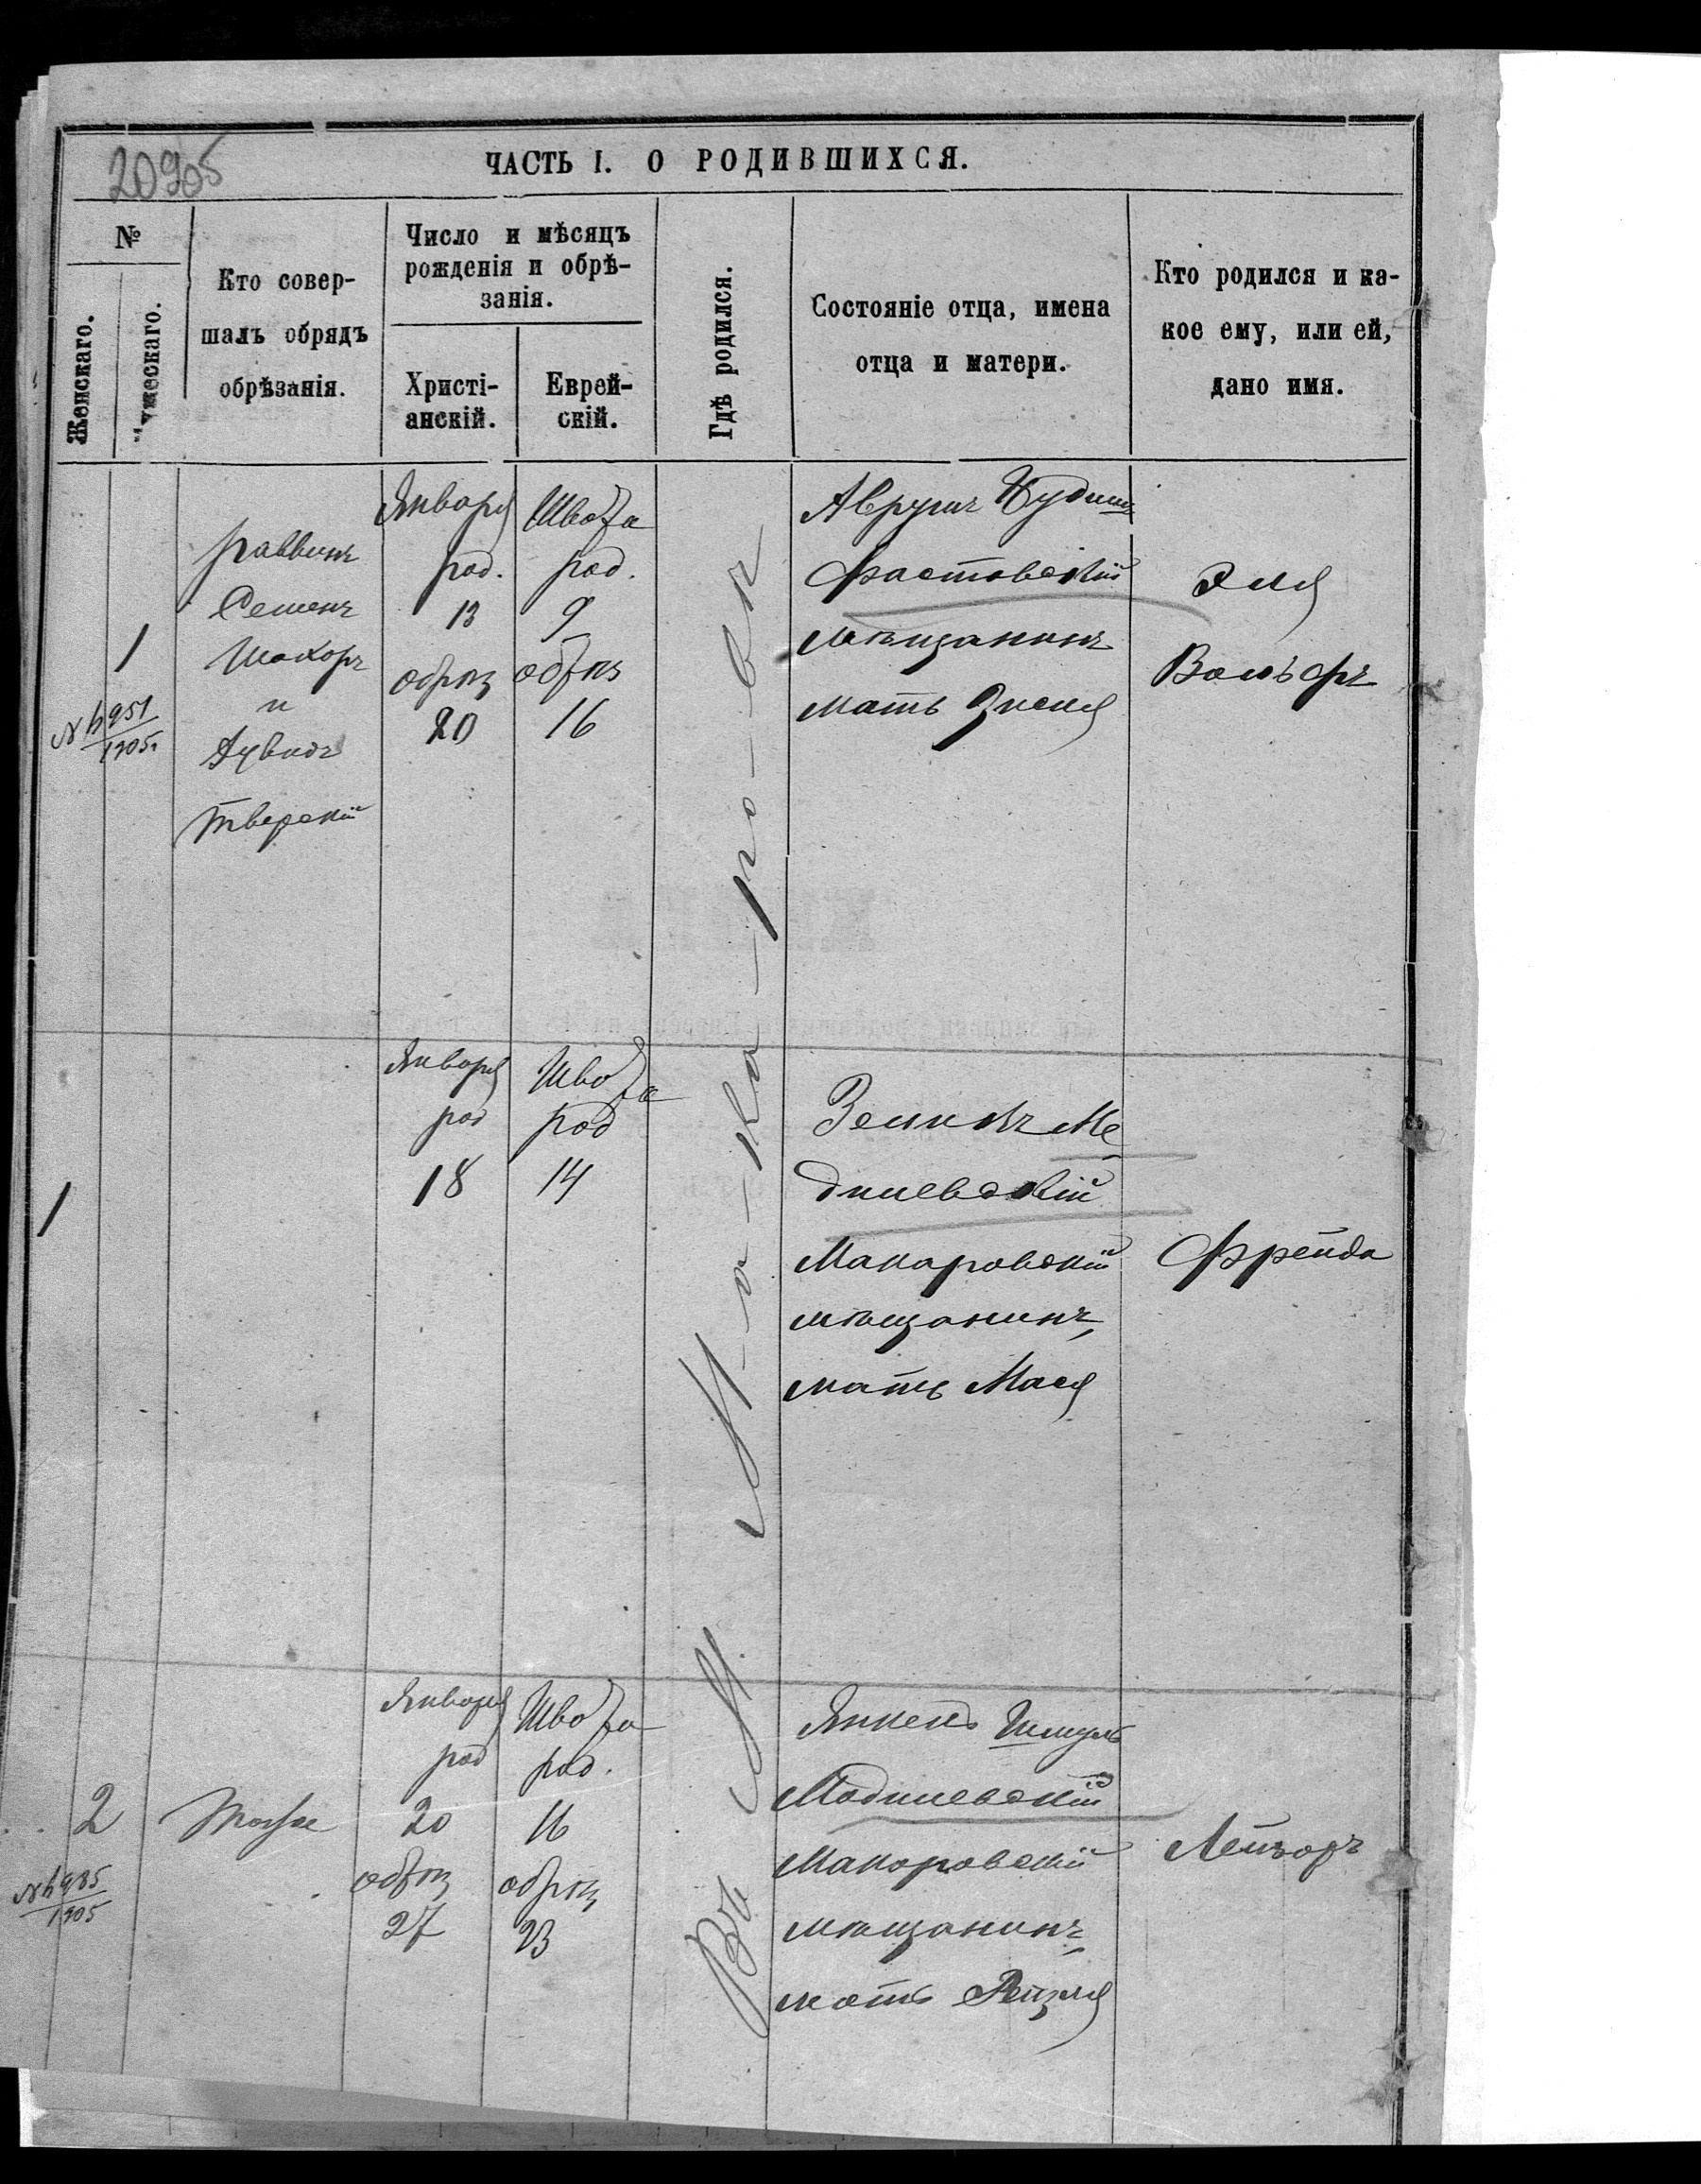 20905
ЧАСТЬ I. О РОДИВШИХСЯ.
№
Женскаго.
Мужескаго.
Кто совер-
шалъ обрядъ
обрѣзанія.
Число и мѣсяцъ
рожденія и обрѣ-
занія.
Христі-
анскій.
Еврей-
скій.
Гдѣ родился.
Состояніе отца, имена
отца и матери.
Кто родился и ка-
кое ему, или ей,
дано имя.
1
№ 951
1905
раввинъ
Семенъ
и
Тверскій
Января
род.
13
обрѣз
20
Швота
род.
9
обрѣз
16
Въ М. М-а-ка-ро-вѣ
Аврумъ
Фастовскій
мѣщанинъ
мать
Эля
Вольфъ
1
Января
род
18
Швота
род
14
Зейликъ
Макаровскій
мѣщанинъ,
мать Мася
Фрейда
2
№ 985
1905
Января
род
20
обрѣз
27
Швота
род.
16
обрѣз
23
Янкель Шмуль
Макаровскій
мѣщанинъ,
мать Рейзля
Лейзоръ